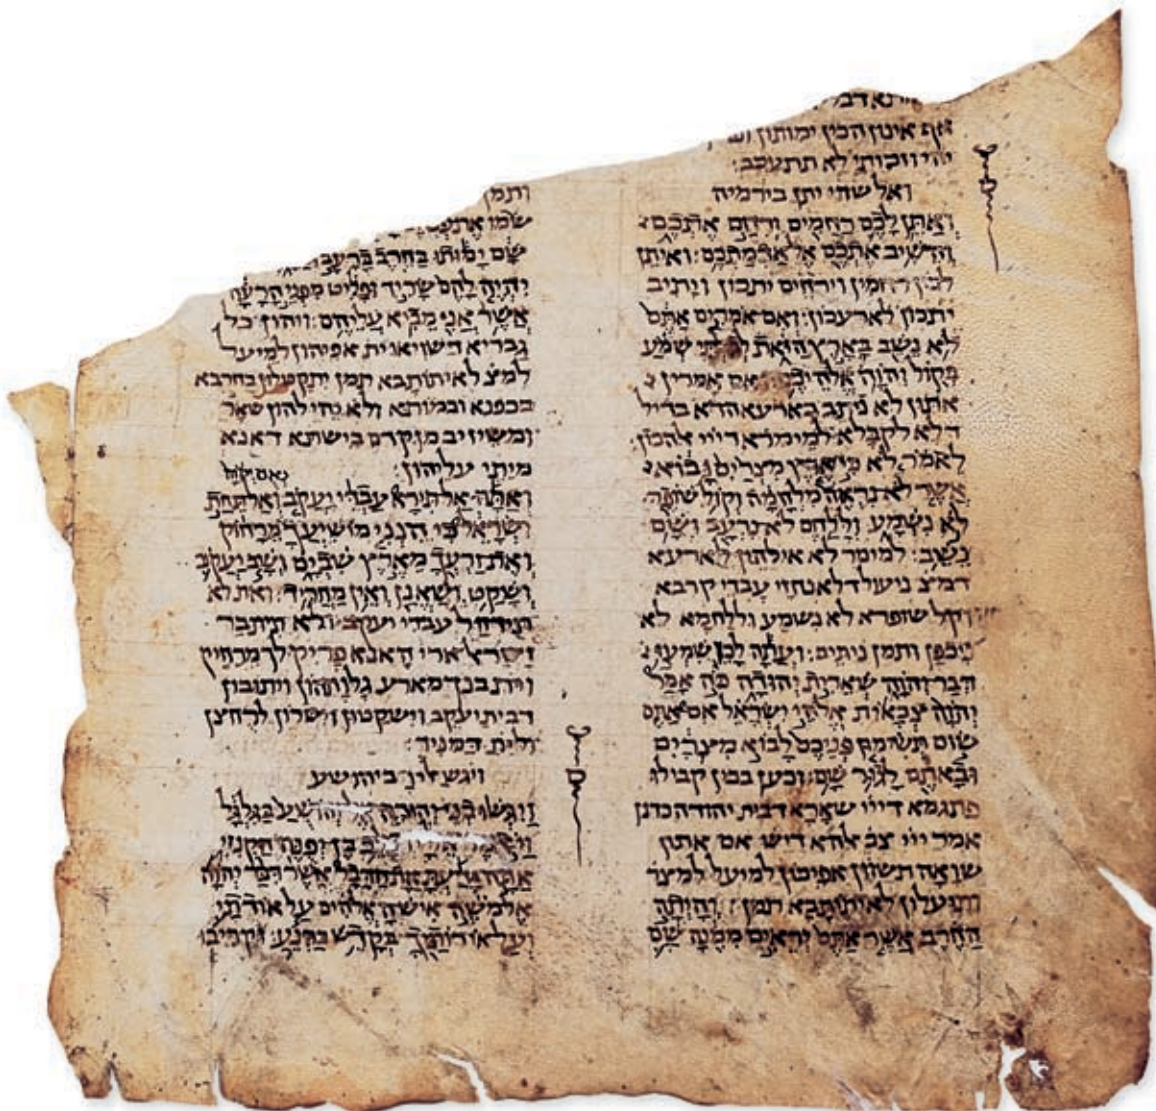 אף אינון הכין ימותון
יהי וזכותי לא תתעכב:
ואל שדי יתן בירמיה
ואתן לכם רחמים ורחם אתכם
והשיב אתכם אל אדמתכם: ואיתן
לכון רחמין וירחים יתכון ויתיב
יתכון לארעכון: ואם אמרים אתם
לא נשב בארץ הזאת לבלתי שמע
בקול יהוה אלהיכם: ואם אמרין
אתון לא ניתב בארעא הדא בדיל
דלא לקבלא למימרא דייי אלהכון:
לאמר לא כי ארץ מצרים נבוא
אשר לא נראה מלחמה וקול שופר
לא נשמע וללחם לא נרעב ושם
נשב: למימר לא אילהין לארעא
דמצ ניעול דלא נחזי עבדי קרבא
וקל שופרא לא נשמע וללחמא לא
ניכפן ותמן ניתיב: ועתה לכן שמעו
דבר יהוה שארית יהודה כה אמר
יהוה צבאות אלהי ישראל אם אתם
שום תשימון פניכם לבוא מצרים
ובאתם לגור שם: וכען בכין קבילו
פתגמא דייי שארא דבית יהודה כדנן
אמר ייי צב אלהא דיש אם אתון
שואה תשוון אפיכון למיעל למצר
ותיעלון לאיתותבא תמן: והיתה
החרב אשר אתם יראים ממנה שם
ס
ותמן
שמו את
שם ימותו בחרב ברעב
יהיה להם שריד ופליט מפני הרעה
אשר אני מביא עליהם: ויהון כל
גבריא דישויאו ית אפיהון למיעל
למצ לאיתותבא תמן יתקטלון בחרבא
בכפנא ובמותנא ולא יהי להון שאר
ומשיזיב מן קדם בישתא דאנא
מיתי עליהון:
ואתה אל תירא עבדי יעקב ואל תחת
ישראל כי הנני מושיעך מרחוק
ואת זרעך מארץ שבים ושב יעקב
ושקט ושאנן ואין מחריד: ואת לא
תידחל עבדי יעקב ולא תיתבר
ישר ארי האנא פריק לך מרחיק
וית בנך מארע גלותהון ויתובון
דבית יעקב וישקטון וישרון לרחצן
ולית דמניד:
ויגש אליו ביהושע
ויגשו בני יהודה אל יהושע בגלגל
ויאמר אליו כלב בן יפנה הקנזי
אתה ידעת את הדבר אשר דבר יהוה
אל משה איש האלהים על אודתי
ועל אודותיך בקדש ברנע: וקריבו
ס